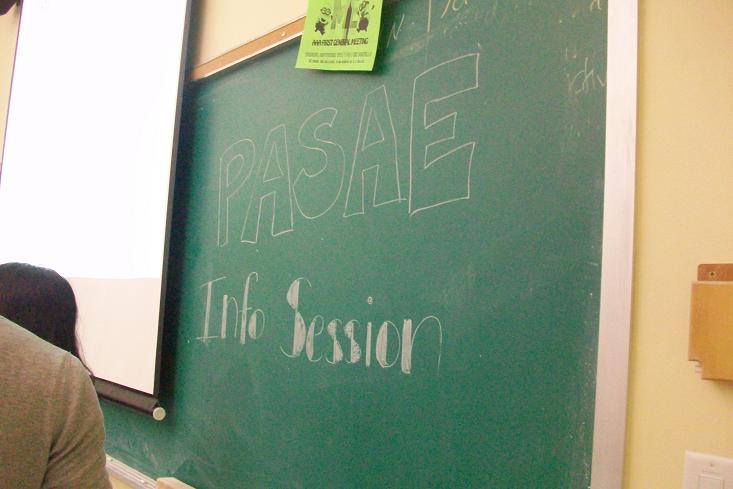 AAA FIRST GENERAL MEETING
PASAE
Info Session